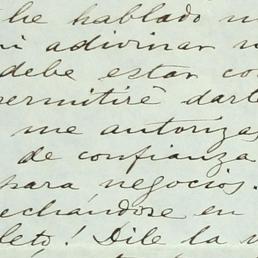 he hablado
ni adivinar
debe estar co
permitiré darle
me autorizas
de confianza
para negocios.
echándose en
leto! Dile la